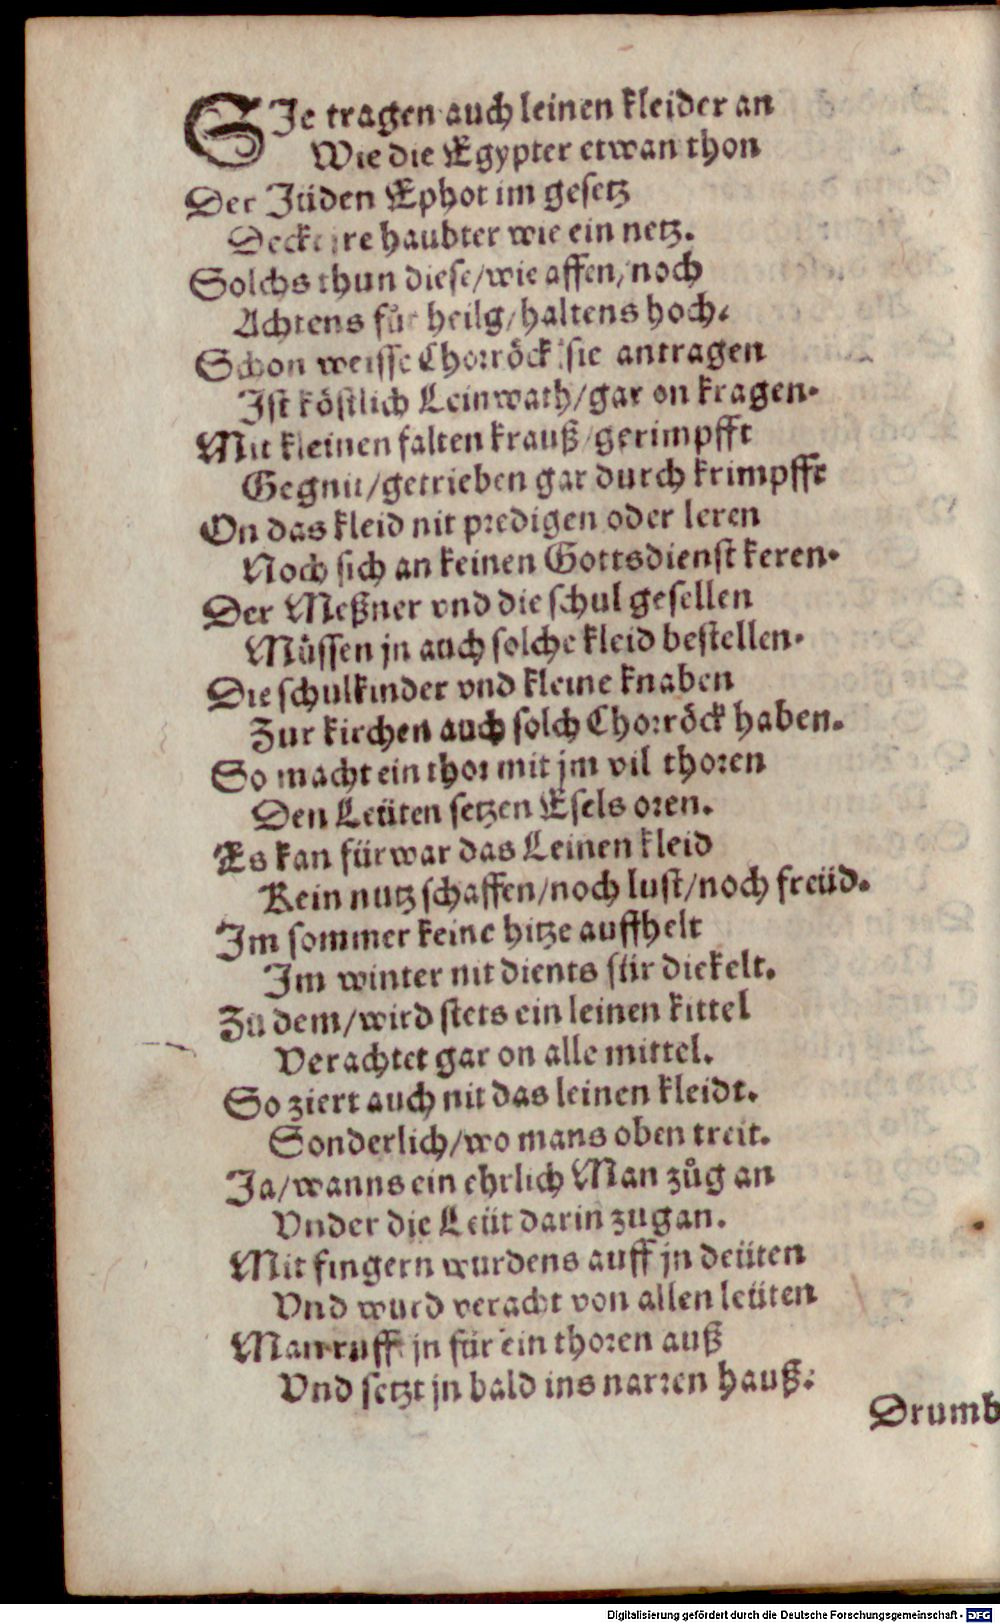 SIe tragen auch leinen kleider an
Wie die Egypter etwan thon
Der Jüden Ephot im gesetz
Deckt jre haubter wie ein netz.
Solchs thun diese/wie affen/noch
Achtens für heilg/haltens hoch.
Schon weisse Chorröck sie antragen
Ist köstlich Leinwath/gar on kragen.
Mit kleinen falten krauß/gerimpfft
Gegnit/getrieben gar durch krimpfft
On das kleid nit predigen oder leren
Noch sich an keinen Gottsdienst keren.
Der Meßner vnd die schul gesellen
Müssen jn auch solche kleid bestellen.
Die schulkinder vnd kleine knaben
Zur kirchen auch solch Chorröck haben.
So macht ein thor mit jm vil thoren
Den Leüten setzen Esels oren.
Es kan fürwar das Leinen kleid
Kein nutz schaffen/noch lust/noch freüd.
Im sommer keine hitze auffhelt
Im winter nit dients für die kelt.
Zu dem/wird stets ein leinen kittel
Verachtet gar on alle mittel.
So ziert auch nit das leinen kleidt.
Sonderlich/wo mans oben treit.
Ja/wanns ein ehrlich Man zůg an
Vnder die Leüt darin zugan.
Mit fingern wurdens auff jn deüten
Vnd wurd veracht von allen leüten
Man ruff jn für ein thoren auß
Vnd setzt jn bald ins narren hauß.
Drumb
Digitalisierung gefördert durch die Deutsche Forschungsgemeinschaft - DFG